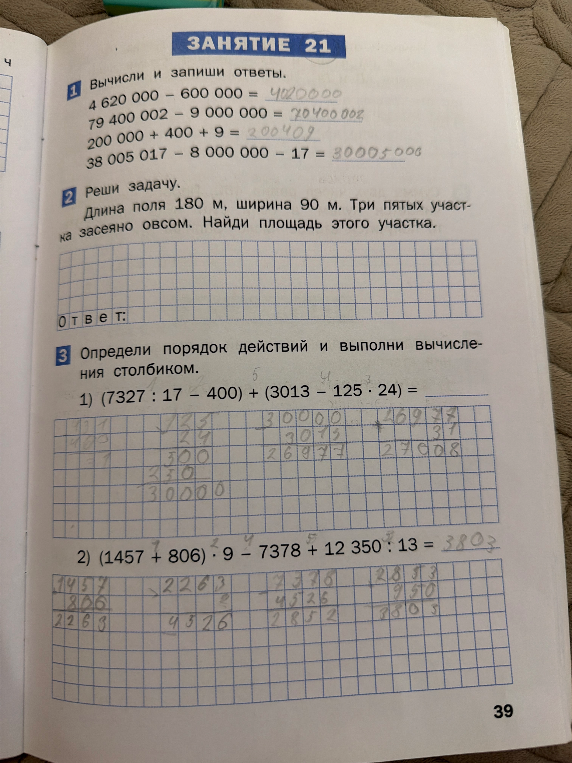 ч
ЗАНЯТИЕ 21
1 Вычисли и запиши ответы.
4 620 000 – 600 000 = 4020000
79 400 002 – 9 000 000 = 70400002
200 000 + 400 + 9 = 200409
38 005 017 – 8 000 000 – 17 = 30005000
2 Реши задачу.
Длина поля 180 м, ширина 90 м. Три пятых участ-
ка засеяно овсом. Найди площадь этого участка.
Ответ:
3 Определи порядок действий и выполни вычисле-
ния столбиком.
1) (7327 : 17 – 400) + (3013 – 125 · 24) =
125 30000 26977
24 3013 31
500 26977 27008
250
30000
2) (1457 + 806) · 9 – 7378 + 12 350 : 13 = 3803
1457 2263 7378 2853
806 4526 950
2263 4526 2852 3803
39